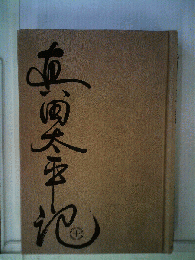 真田太平記